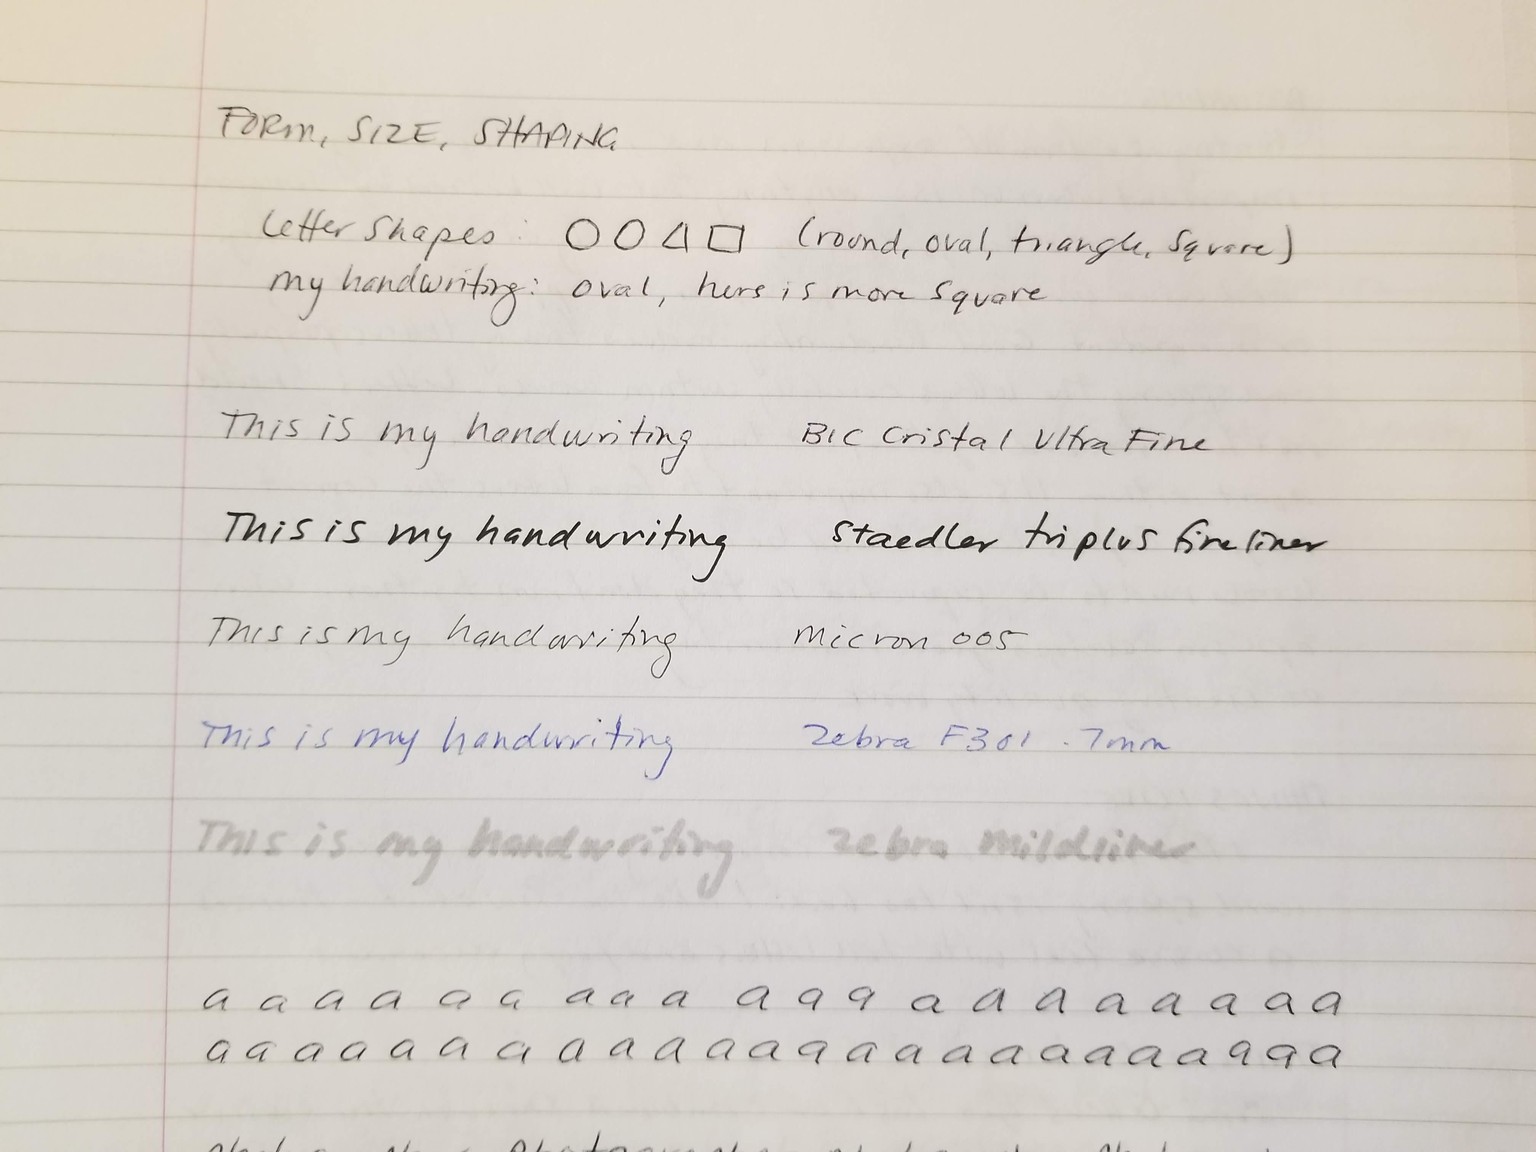 FORM, SIZE, SHAPING
letter shapes: (round, oval, triangle, square)
my handwriting: oval, here is more square
This is my handwriting BIC Cristal Ultra Fine
This is my handwriting Staedler triplus fineliner
This is my handwriting Micron 005
This is my handwriting Zebra F301 .7mm
This is my handwriting Zebra Mildliner
a a a a a a a a a a a a a a a a a a a a
a a a a a a a a a a a a a a a a a a a a a a a a